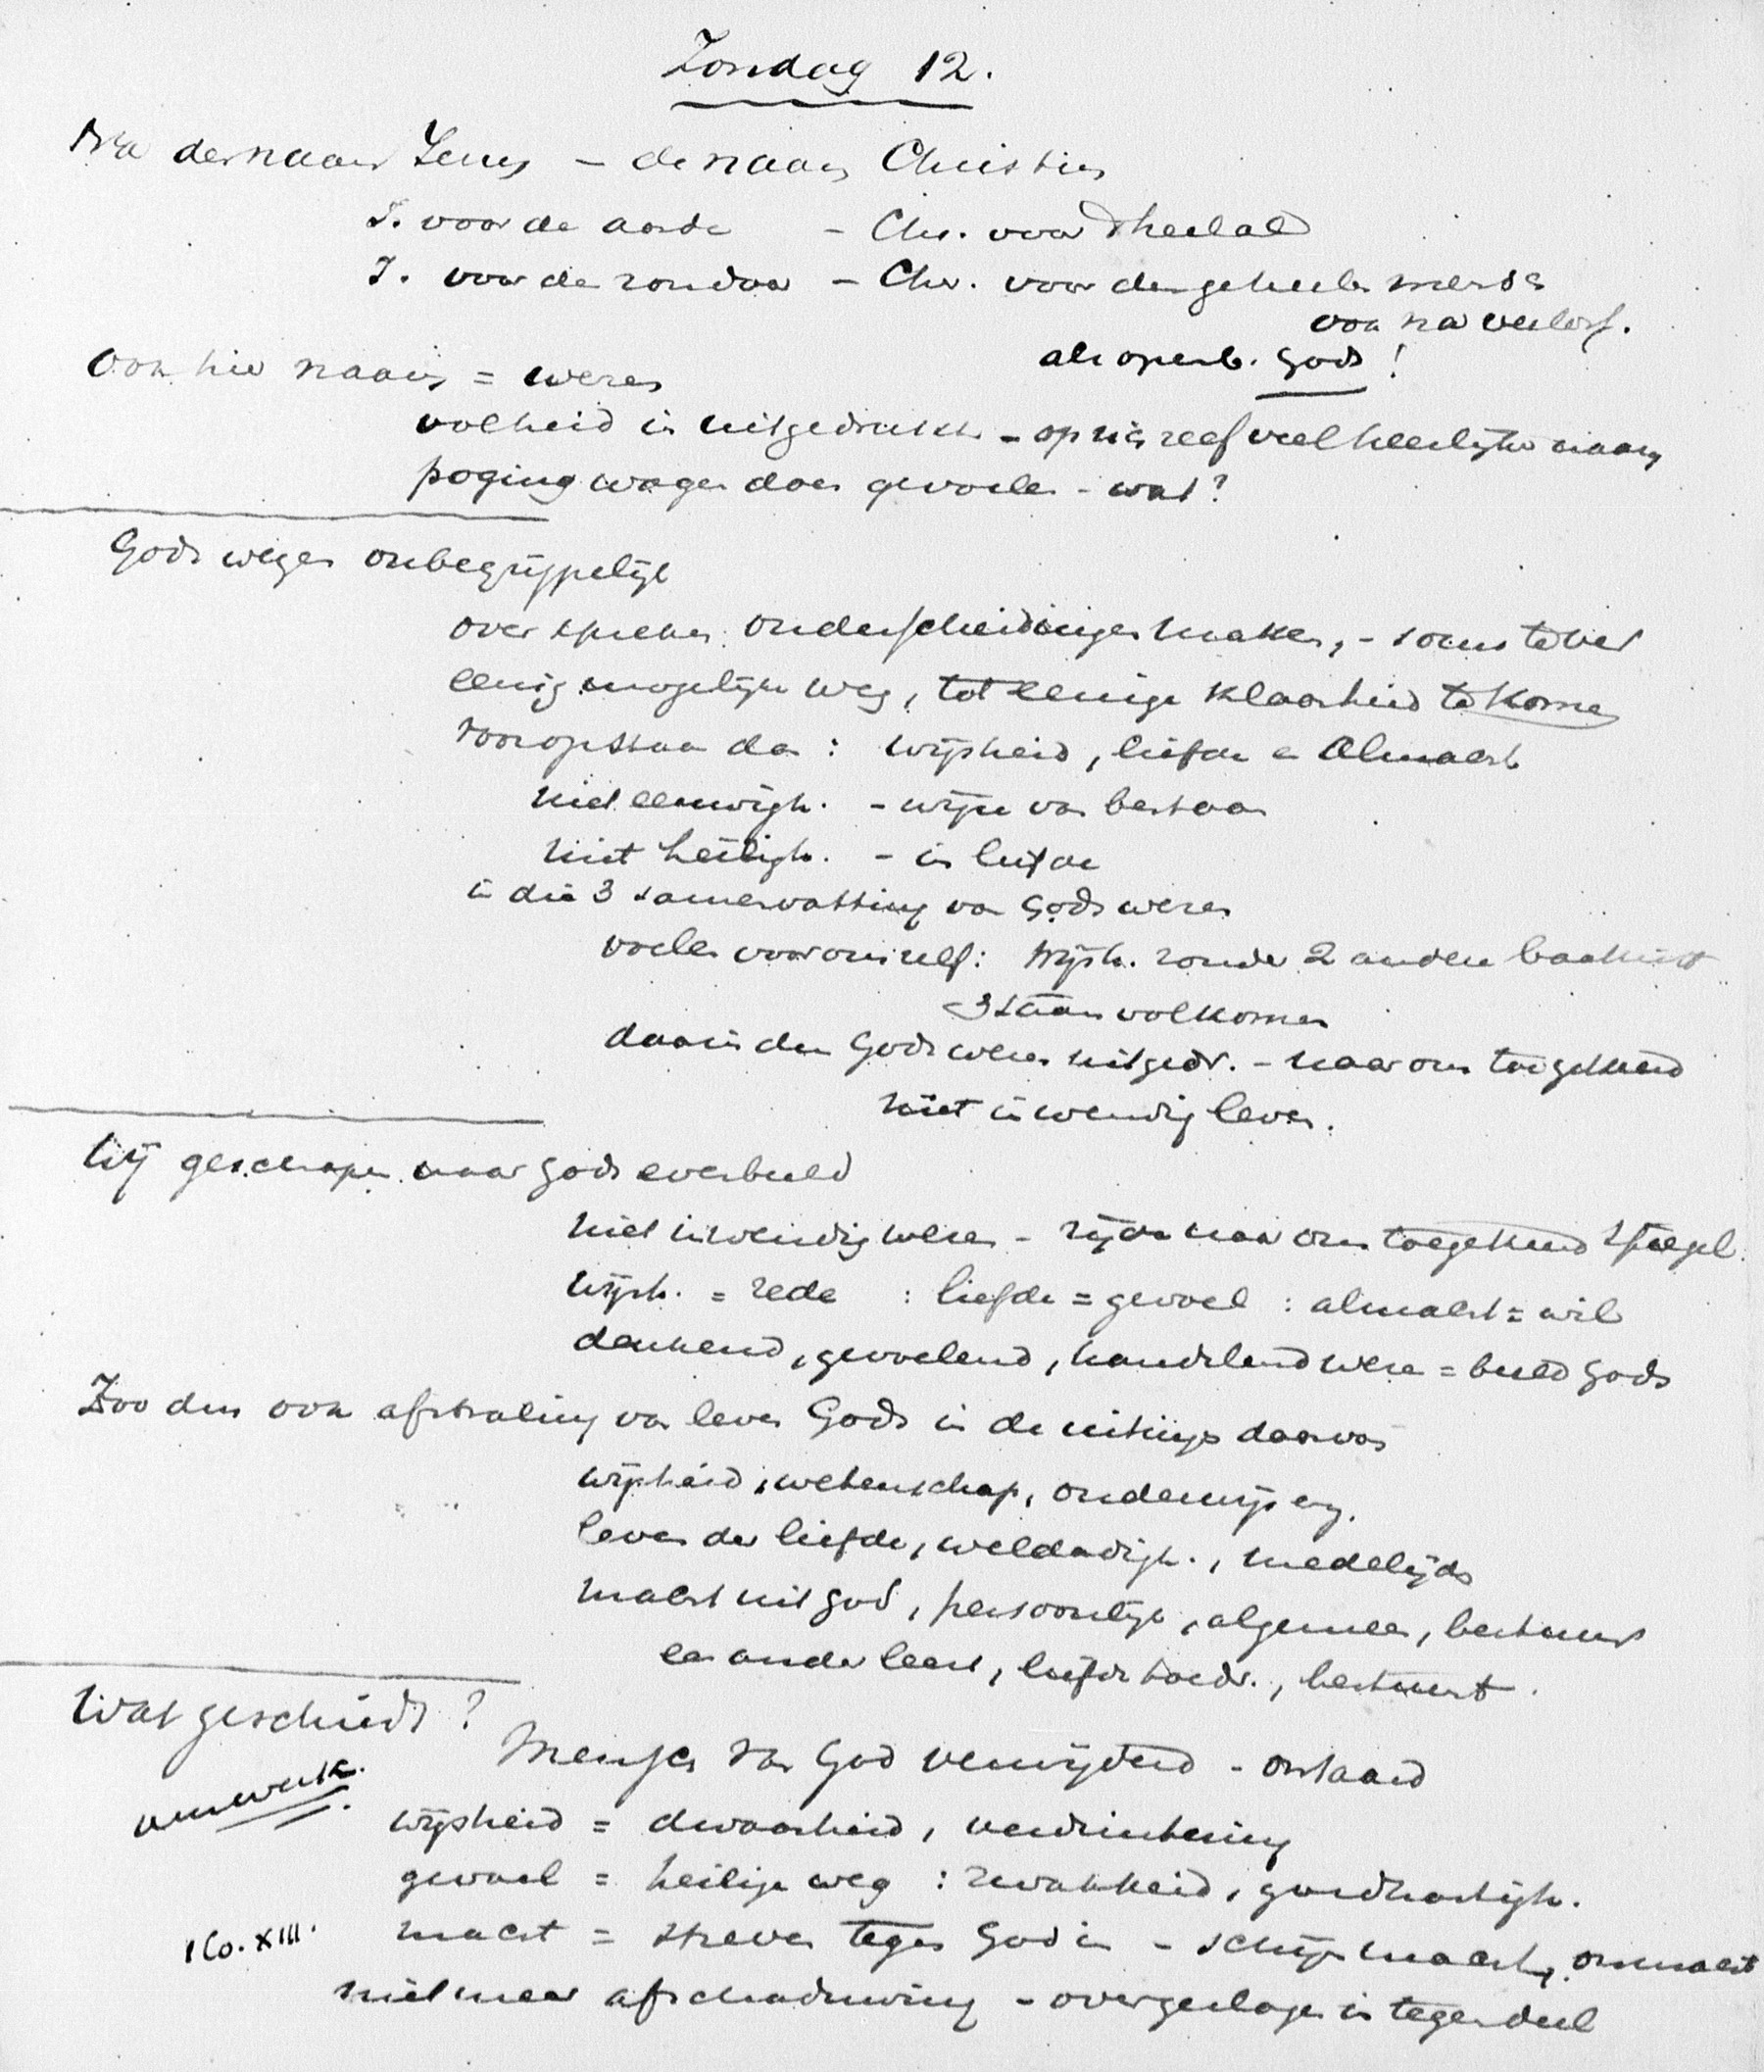 Zondag 12.
Na den naam Jezus – de naam Christus
J. voor de aarde – Chr. voor 't heelal
J. voor de zondaar – Chr. voor den geheelen mensch
ook na verloss.
als openb. Gods!
Ook hier naam = wezen
volheid in uitgedrukt – op zich zelf veel heerlijke naam
poging wagen doen gevoelen – wat?
Gods wegen onbegrijpelijk
over spreken: onderscheidingen maken, – soms te veel
eenig mogelijke weg, tot eenige klaarheid te komen
voorop staan dan: wijsheid, liefde en Almacht
niet eeuwigh. – wijze van bestaan
niet heiligh. – in liefde
in die 3 samenvatting van Gods wezen
voelen voor onszelf: wijsh. zonder 2 andere baat niet
3 saam volkomen
daarin dan Gods wezen uitgedr. – naar ons toegekeerd
niet inwendig leven.
Wij geschapen naar Gods evenbeeld
niet inwendig wezen – zijde naar ons toegekeerd spiegel
wijsh. = rede : liefde = gevoel : almacht = wil
denkend, gevoelend, handelend wezen = beeld Gods
Zoo dus ook afstraling van leven Gods in de uitingen daarvan
wijsheid, wetenschap, onderwijs enz.
leven der liefde, weldadigh., medelijden
macht uit God, persoonlijk, algemeen, bestuur
een ander leert, liefde , bestuurt.
Wat geschiedt?
Mensch van God verwijderd – ontaard
uitwerk.
wijsheid = dwaasheid, verduistering
gevoel = heilige weg : zwakheid, goedhartigh.
1 Co. XIII. macht = streven tegen God in – schijnmacht, onmacht
niet meer afschaduwing – overgeslagen in tegendeel